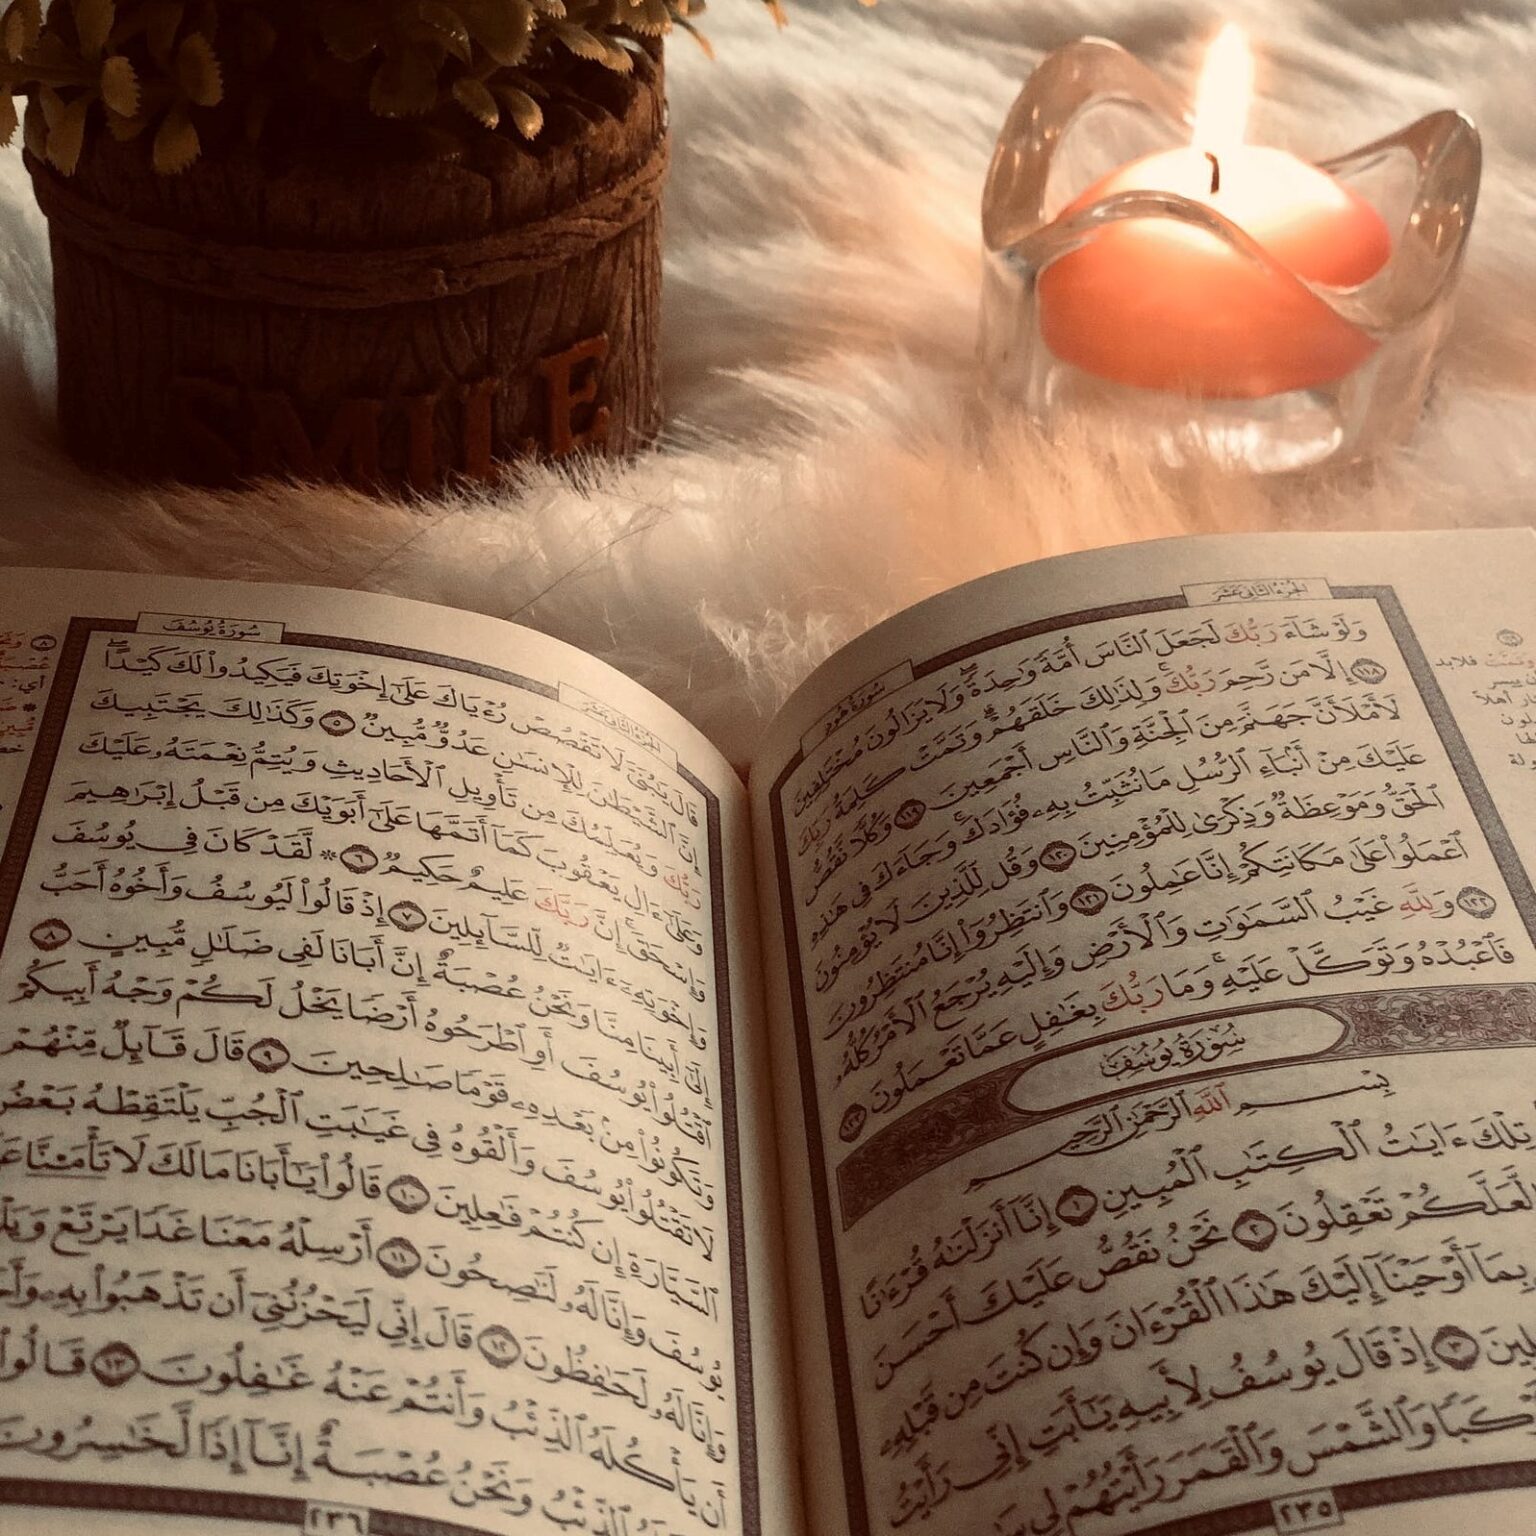 SMILE
الجزء الثاني عشر
سورة هود
وَلَوْ شَآءَ رَبُّكَ لَجَعَلَ ٱلنَّاسَ أُمَّةً وَٰحِدَةً ۖ وَلَا يَزَالُونَ مُخْتَلِفِينَ
١١٨ إِلَّا مَن رَّحِمَ رَبُّكَ ۚ وَلِذَٰلِكَ خَلَقَهُمْ ۗ وَتَمَّتْ كَلِمَةُ رَبِّكَ
لَأَمْلَأَنَّ جَهَنَّمَ مِنَ ٱلْجِنَّةِ وَٱلنَّاسِ أَجْمَعِينَ ١١٩ وَكُلًّا نَّقُصُّ
عَلَيْكَ مِنْ أَنۢبَآءِ ٱلرُّسُلِ مَا نُثَبِّتُ بِهِۦ فُؤَادَكَ ۚ وَجَآءَكَ فِى هَٰذِهِ
ٱلْحَقُّ وَمَوْعِظَةٌ وَذِكْرَىٰ لِلْمُؤْمِنِينَ ١٢٠ وَقُل لِّلَّذِينَ لَا يُؤْمِنُونَ
ٱعْمَلُوا۟ عَلَىٰ مَكَانَتِكُمْ إِنَّا عَٰمِلُونَ ١٢١ وَٱنتَظِرُوٓا۟ إِنَّا مُنتَظِرُونَ
١٢٢ وَلِلَّهِ غَيْبُ ٱلسَّمَٰوَٰتِ وَٱلْأَرْضِ وَإِلَيْهِ يُرْجَعُ ٱلْأَمْرُ كُلُّهُۥ
فَٱعْبُدْهُ وَتَوَكَّلْ عَلَيْهِ ۚ وَمَا رَبُّكَ بِغَٰفِلٍ عَمَّا تَعْمَلُونَ ١٢٣
سُورَةُ يُوسُفَ
بِسْمِ ٱللَّهِ ٱلرَّحْمَٰنِ ٱلرَّحِيمِ
تِلْكَ ءَايَٰتُ ٱلْكِتَٰبِ ٱلْمُبِينِ ١ إِنَّآ أَنزَلْنَٰهُ قُرْءَٰنًا
لَّعَلَّكُمْ تَعْقِلُونَ ٢ نَحْنُ نَقُصُّ عَلَيْكَ أَحْسَنَ
بِمَآ أَوْحَيْنَآ إِلَيْكَ هَٰذَا ٱلْقُرْءَانَ وَإِن كُنتَ مِن قَبْلِهِۦ
٣ إِذْ قَالَ يُوسُفُ لِأَبِيهِ يَٰٓأَبَتِ إِنِّى رَأَيْتُ
وَٱلشَّمْسَ وَٱلْقَمَرَ رَأَيْتُهُمْ لِى
٢٣٥
الجزء الثاني عشر
سورة يوسف
قَالَ يَٰبُنَىَّ لَا تَقْصُصْ رُءْيَاكَ عَلَىٰٓ إِخْوَتِكَ فَيَكِيدُوا۟ لَكَ كَيْدًا ۖ
إِنَّ ٱلشَّيْطَٰنَ لِلْإِنسَٰنِ عَدُوٌّ مُّبِينٌ ٥ وَكَذَٰلِكَ يَجْتَبِيكَ
رَبُّكَ وَيُعَلِّمُكَ مِن تَأْوِيلِ ٱلْأَحَادِيثِ وَيُتِمُّ نِعْمَتَهُۥ عَلَيْكَ
وَعَلَىٰٓ ءَالِ يَعْقُوبَ كَمَآ أَتَمَّهَا عَلَىٰٓ أَبَوَيْكَ مِن قَبْلُ إِبْرَٰهِيمَ
إِنَّ رَبَّكَ عَلِيمٌ حَكِيمٌ ٦ لَّقَدْ كَانَ فِى يُوسُفَ
ءَايَٰتٌ لِّلسَّآئِلِينَ ٧ إِذْ قَالُوا۟ لَيُوسُفُ وَأَخُوهُ أَحَبُّ
مِنَّا وَنَحْنُ عُصْبَةٌ إِنَّ أَبَانَا لَفِى ضَلَٰلٍ مُّبِينٍ ٨
يُوسُفَ أَوِ ٱطْرَحُوهُ أَرْضًا يَخْلُ لَكُمْ وَجْهُ أَبِيكُمْ
مِنۢ بَعْدِهِۦ قَوْمًا صَٰلِحِينَ ٩ قَالَ قَآئِلٌ مِّنْهُمْ
يُوسُفَ وَأَلْقُوهُ فِى غَيَٰبَتِ ٱلْجُبِّ يَلْتَقِطْهُ بَعْضُ
إِن كُنتُمْ فَٰعِلِينَ ١٠ قَالُوا۟ يَٰٓأَبَانَا مَا لَكَ لَا تَأْمَ۫نَّا
وَإِنَّا لَهُۥ لَنَٰصِحُونَ ١١ أَرْسِلْهُ مَعَنَا غَدًا يَرْتَعْ
لَهُۥ لَحَٰفِظُونَ ١٢ قَالَ إِنِّى لَيَحْزُنُنِىٓ أَن تَذْهَبُوا۟ بِهِۦ
يَأْكُلَهُ ٱلذِّئْبُ وَأَنتُمْ عَنْهُ غَٰفِلُونَ ١٣ قَالُوا۟
ٱلذِّئْبُ وَنَحْنُ عُصْبَةٌ إِنَّآ إِذًا لَّخَٰسِرُونَ
٢٣٦